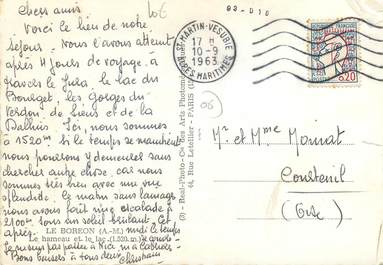 Chers amis
Voici le lieu de notre
séjour. Nous l'avons atteint
après 4 jours de voyage, à
travers le Jura, le lac du
Bourget, les gorges du
Verdon, de Cians et de la
Ici, nous sommes
à 1520m. Si le temps se maintient
nous pourrons y demeurer sans
chercher autre chose, car nous
sommes très bien avec une vue
splendide. Le matin sans lainage
nous avons fait une escalade à
2100m sous un soleil brûlant. Cet
après. midi le temps
LE BOREON (A.-M.)
Le hameau et le lac (1.520 m.)
Je ne suis pas passée à Nice, ni à Cannes.
Bons baisers à tous deux Christiane
(3) - Real-Photo - Cie des Arts Photomécaniques
44, Rue Letellier - PARIS
93-D10
06
ST-MARTIN-VESUBIE
17 H
10-9
1963
ALPES-MARITIMES
0,20
Mr et Mme Moinat
Courteuil
(Oise)